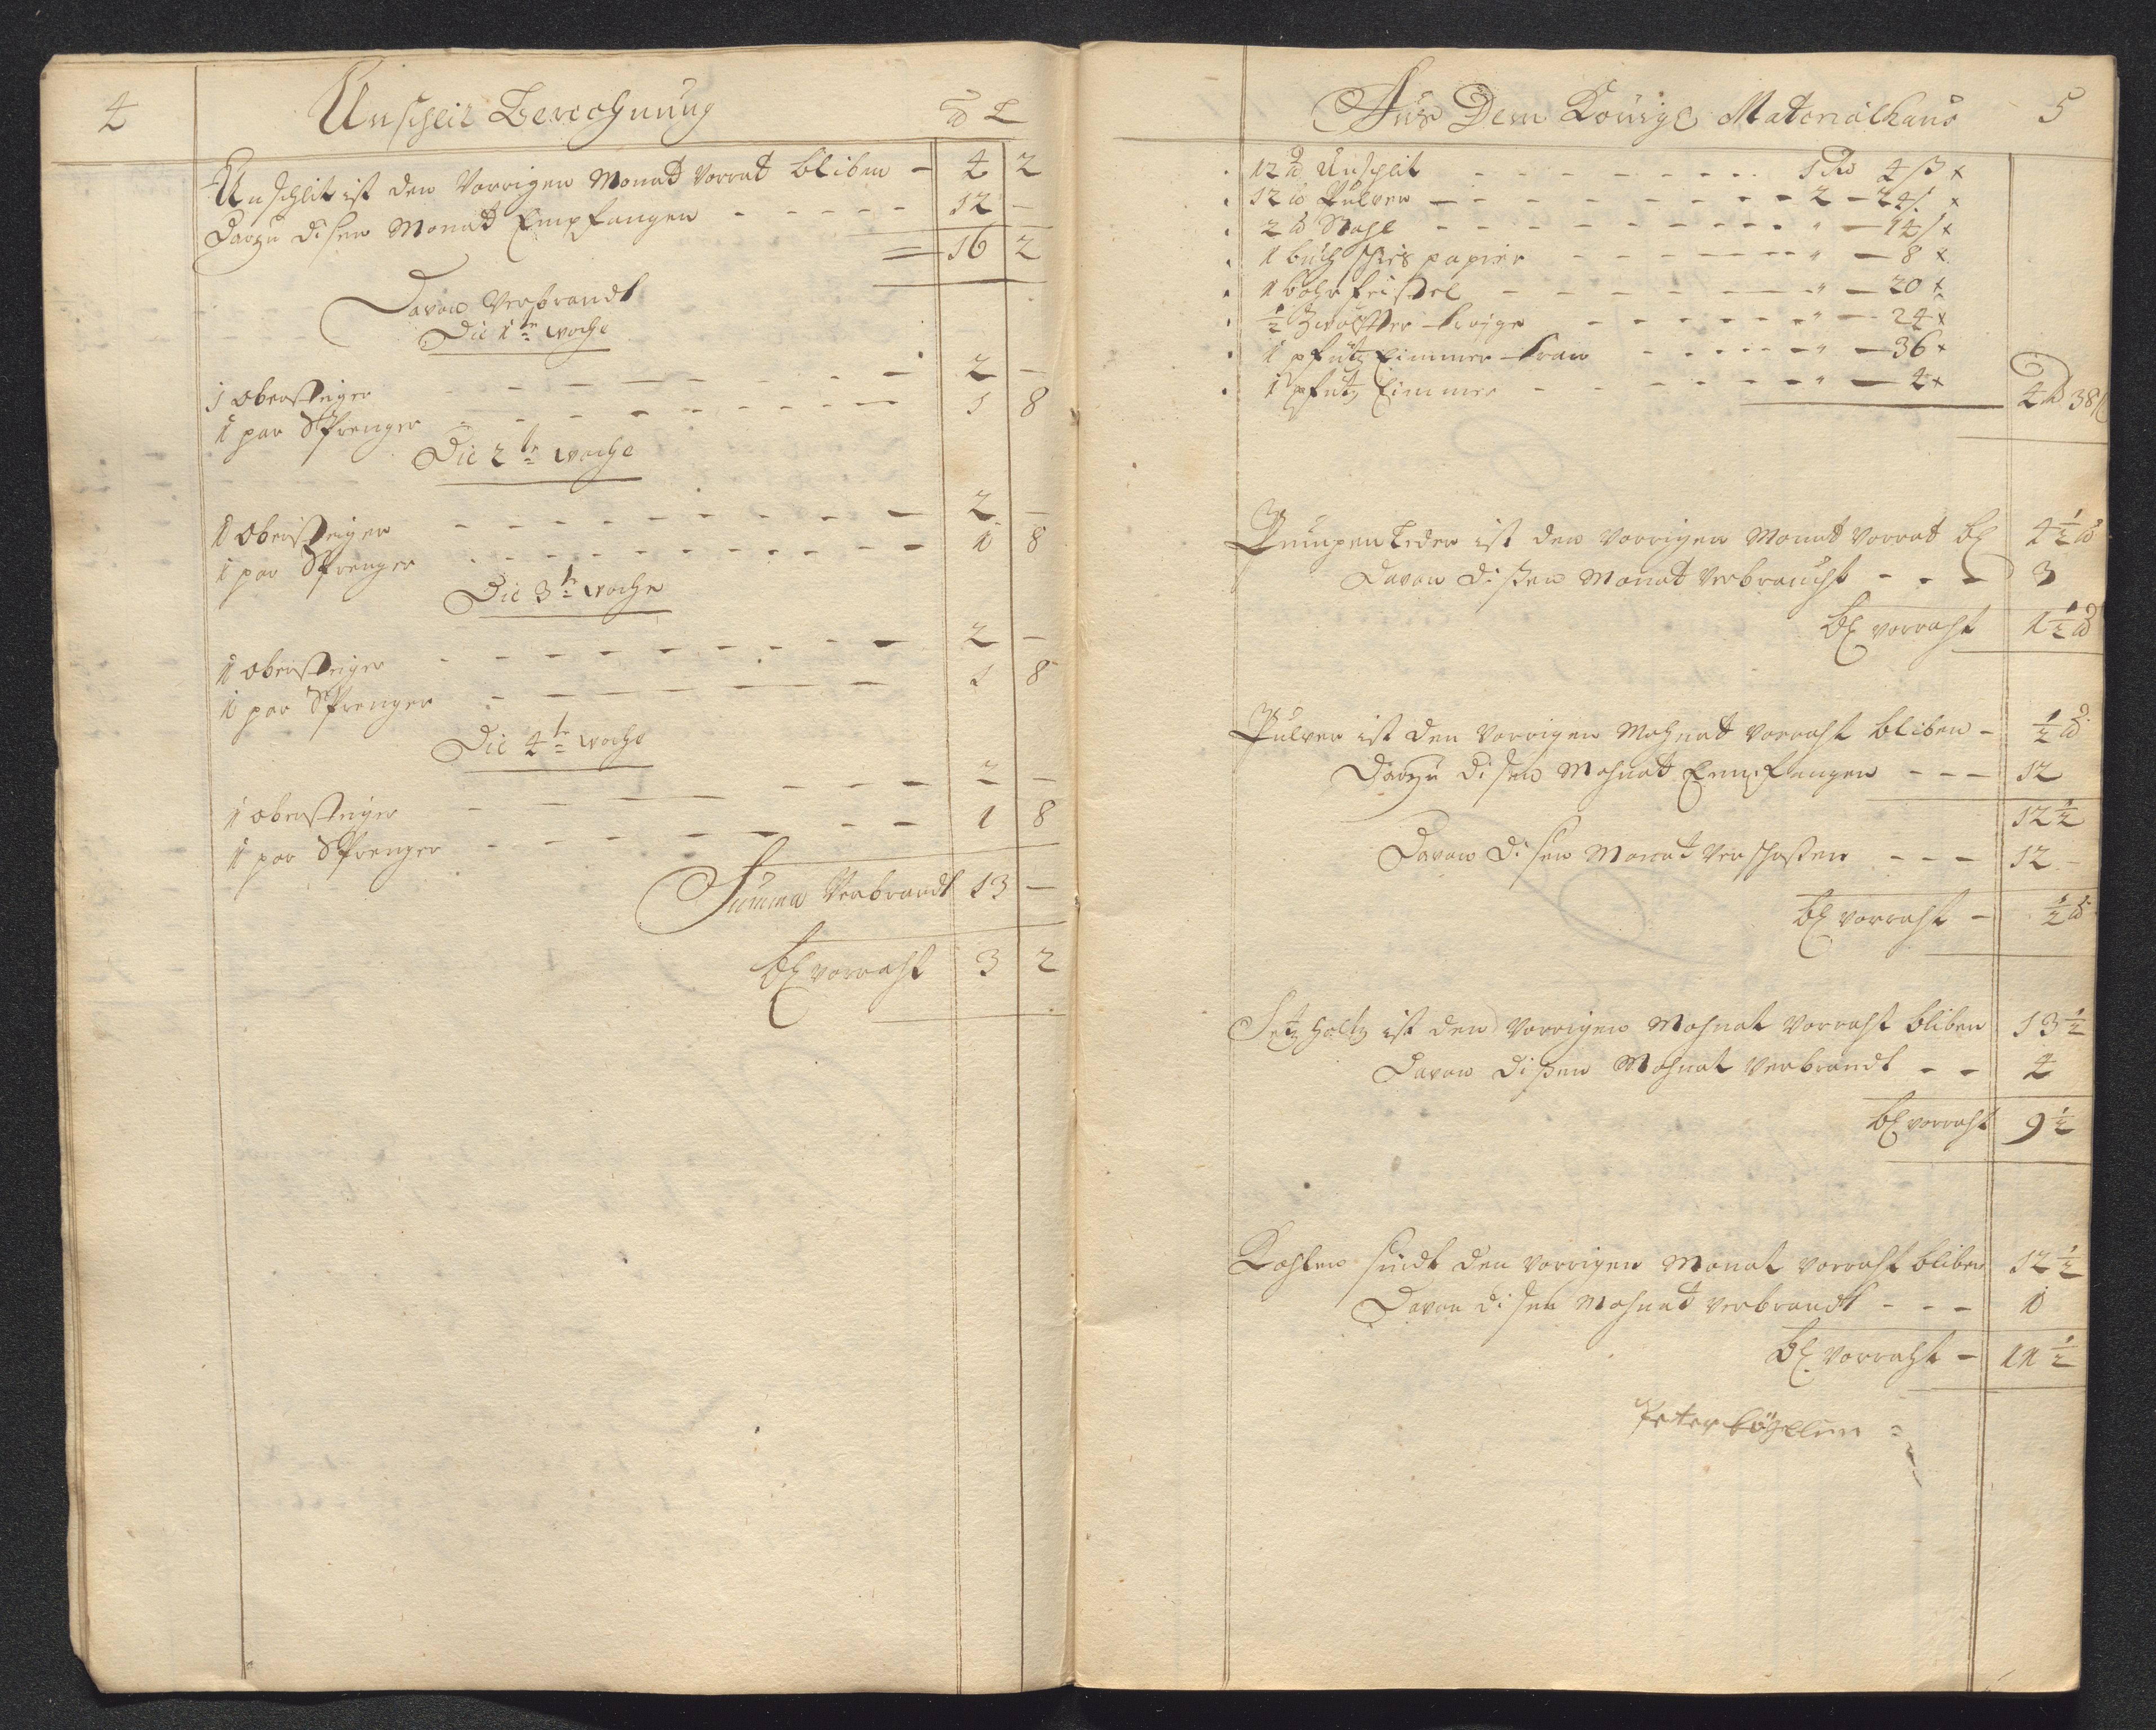 4
Unschlit Berechnung ℔ L
Unschlit ist den Vorrigen Monat Vorrat bliben - 4 2
Darzu disen Monat Empfangen - - - - - 12 -
= 16 2
Davon Verbrandt
Die 1te woche
1 obersteiger - - - - - - - 2 -
1 par Sprenger - - - - - - - 1 8
Die 2te woche
1 obersteiger - - - - - - - 2 -
1 par Sprenger - - - - - - - 1 8
Die 3te woche
1 obersteiger - - - - - - - 2 -
1 par Sprenger - - - - - - - 1 8
Die 4te woche
1 obersteiger - - - - - - - 2 -
1 par Sprenger - - - - - - - 1 8
Summa Verbrandt 13 -
bl vorraht 3 2
Aus Dem Königl Materialhaus 5
12 ℔ Unschlit - - - - - - 1 4 x
12 ℔ Pulver - - - - - - 2 - 24 x
2 ℔ Stahl - - - - - - " - 14 x
1 buch schies papier - - - - - " - 8 x
1 bohr feistel - - - - - - " - 20 x
1/2 - - - - - " - 24 x
1 pfütz Eimmer - - - - " - 36 x
1 pfütz Eimmer - - - - - " - 4 x
4 38
Pumpen Leder ist den vorrigen Monat Vorrat bl 4 1/2 ℔
Davon dißen Monat Verbraucht - - - 3
bl vorraht 1 1/2 ℔
Pulver ist den Vorrigen Mohnat Vorraht bliben - 1/2 ℔
Darzu disen Mohnat Empfangen - - - 12
12 1/2
Davon disen Monat Verschoßen - - - 12 -
bl vorraht - 1/2 ℔
Setz holtz ist den Vorrigen Mohnat Vorraht bliben 13 1/2
Davon dißen Mohnat Verbrandt - - 4
bl vorraht 9 1/2
Kohlen sindt den vorrigen Monat vorraht bliben 12 1/2
Davon disen Mohnat Verbrandt - - - 1
bl vorraht - 11 1/2
Peter